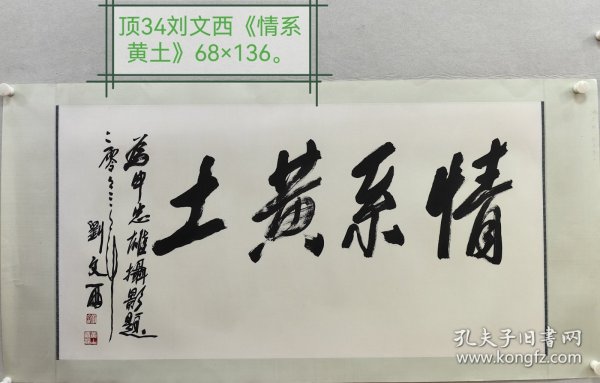 顶34刘文西《情系
黄土》68×136。
情系黄土
为申忠雄攝影题
劉文西
孔夫子旧书网
www.kongfz.com